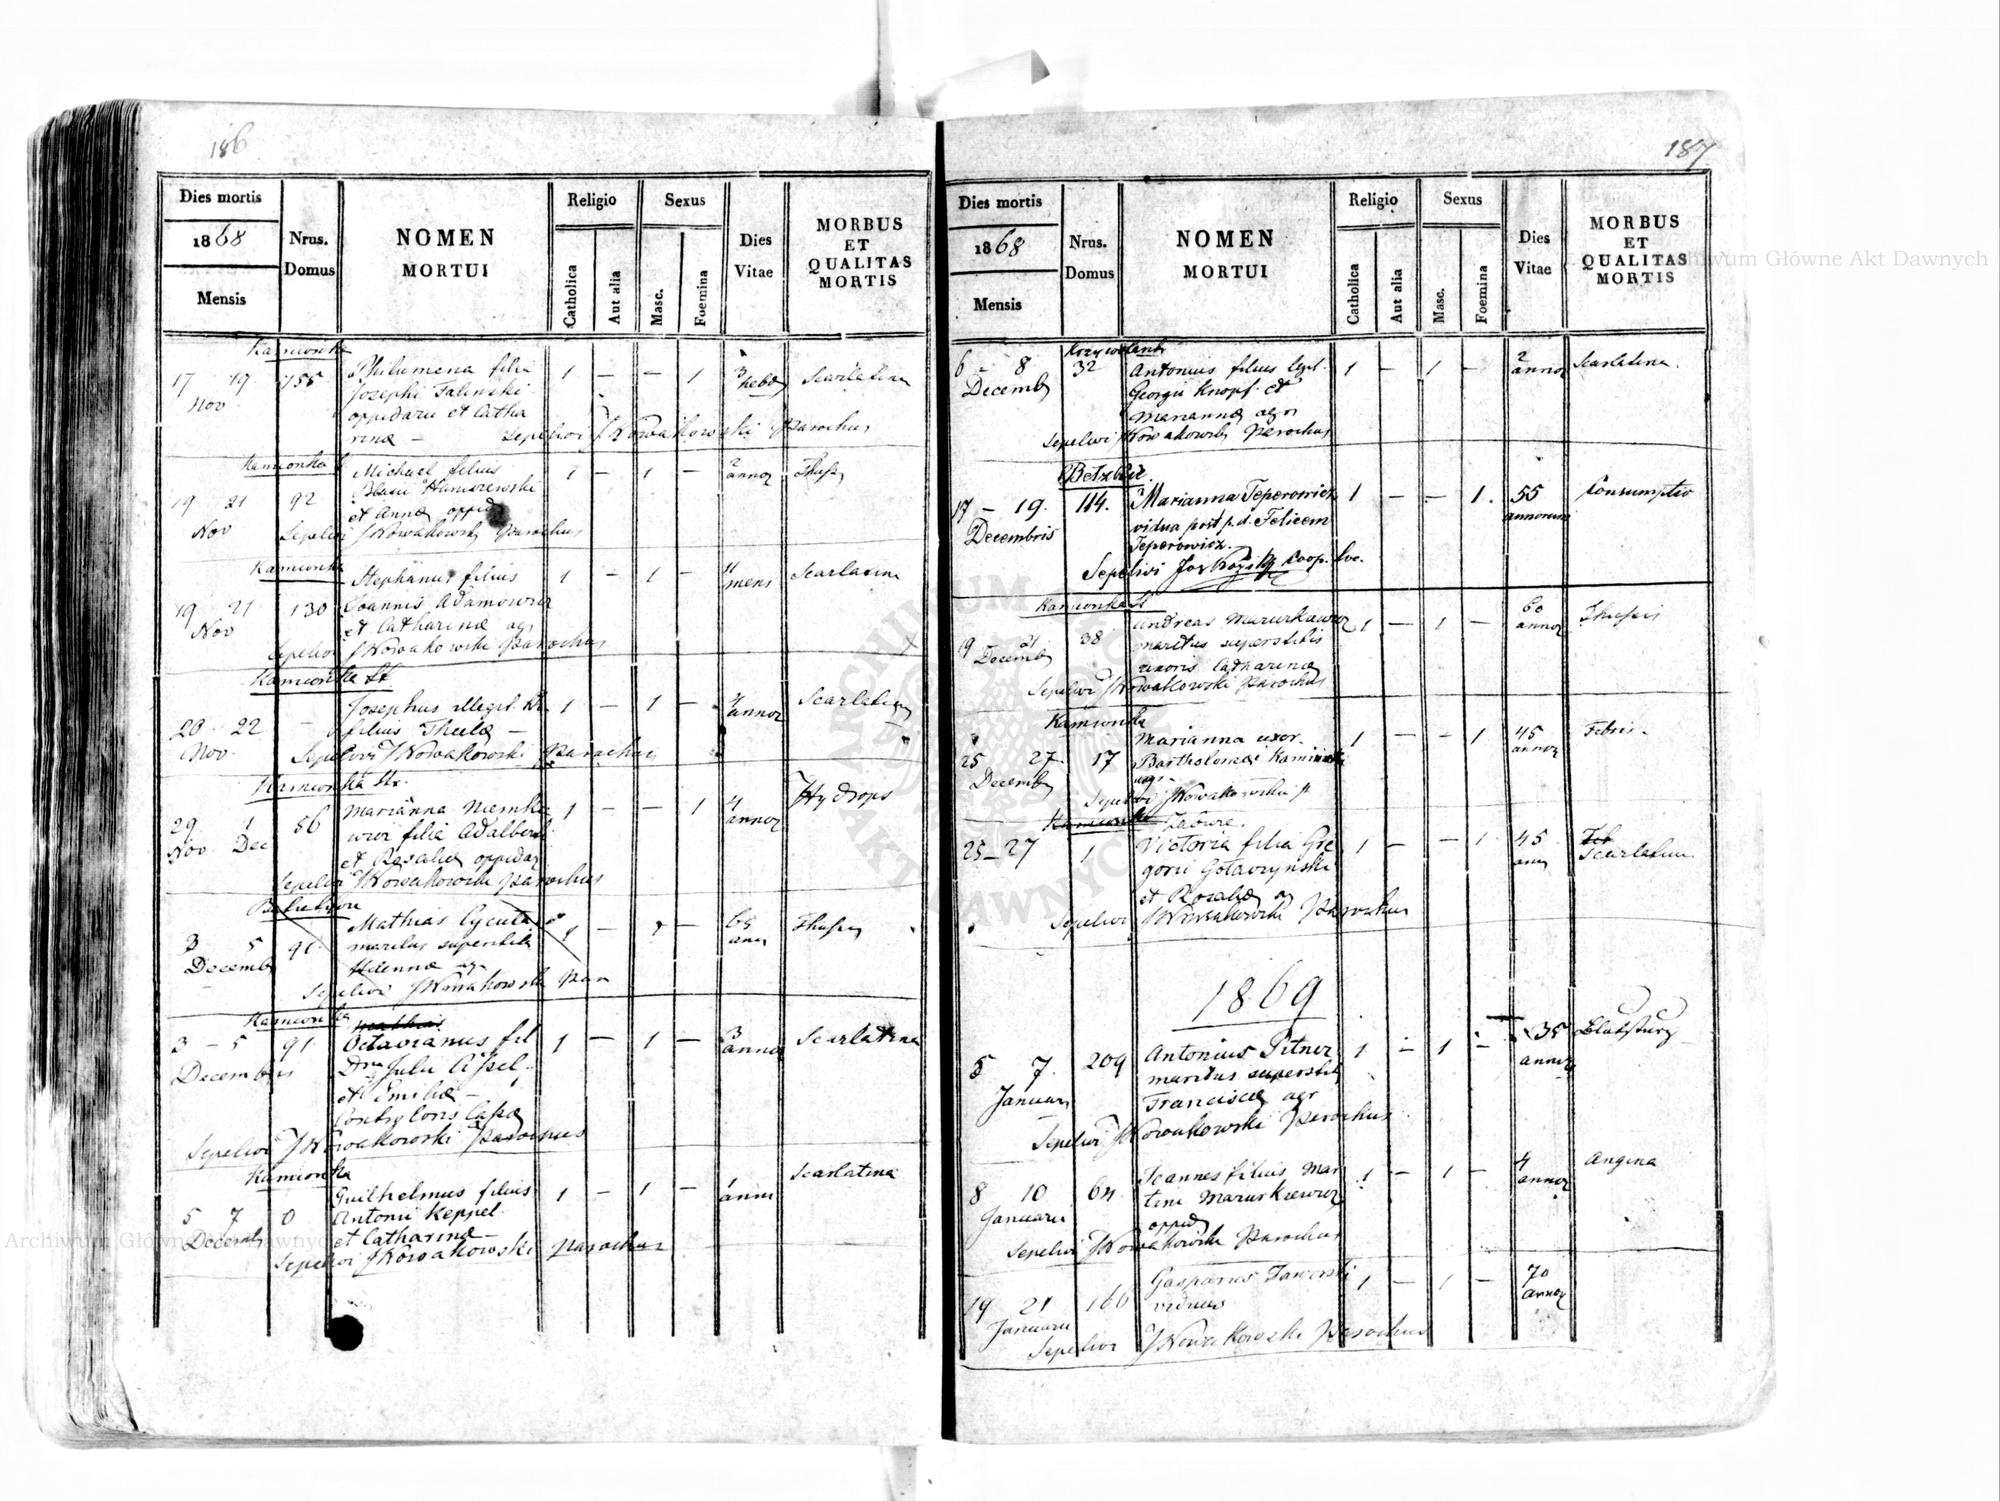 186
Dies mortis
1868
Mensis
Nrus.
Domus
NOMEN
MORTUI
Religio
Catholica
Aut alia
Sexus
Masc.
Foemina
Dies
Vitae
MORBUS
ET
QUALITAS
MORTIS
Kamionka
17 19 155 Philumena filia 1 — — 1 3 Scarlatina
Nov Josephi Falinski hebd
oppidarii et Catha
rinæ — Sepelivi JNowakowski Parochus
Kamionka
Michael filius 1 — 1 — 2
19 21 92 Blasii annor
Nov et Annæ oppid
Sepelivi JNowakowski Parochus
Kamionka
Stephanus filius 1 — 1 — 11 Scarlatina
19 21 130 Joannis Adamowicz mens
Nov et Catharinæ agr
Sepelivi JNowakowski Parochus
Kamionka St
Josephus illegit. 1 — 1 — 4 Scarlatina
20 22 — filius Theclæ — annor
Nov. Sepelivi JNowakowski Parochus
Kamionka Str.
29 1 56 Marianna 1 — — 1 4 Hydrops
Nov Dec filia Adalberti annor
et Rosaliæ oppidar
Sepelivi JNowakowski Parochus
Mathias 1 — 1 — 65
3 5 91 maritus superstitis ann
Decemb agr
Sepelivi JNowakowski Par
Kamionka
Mathias
3 – 5 91 Octavianus fil 1 — 1 — 3 Scarlatina
Decembris Dni Julii annor
et Emiliæ —
Sepelivi JNowakowski Parochus
Kamionka
Guilhelmus filius 1 — 1 — 1 Scarlatina
5 7 0 Antonii Keppel anni
Decemb et Catharinæ —
Sepelivi JNowakowski Parochus
187
Dies mortis
1868
Mensis
Nrus.
Domus
NOMEN
MORTUI
Religio
Catholica
Aut alia
Sexus
Masc.
Foemina
Dies
Vitae
MORBUS
ET
QUALITAS
MORTIS
6 – 8 32 Antonius filius legit. 1 — 1 — 2 Scarlatina.
Decemb Georgii Knopf et annor
Mariannæ agr
Sepelivi JNowakowski Parochus
17 – 19. 114. Marianna Teperowicz 1 — — 1. 55 Consumptio
Decembris vidua post p.d. Felicem annorum
Teperowicz.
Sepelivi Coop. loc.
Kamionka St
19 21 38 Andreas Mazurkiewicz 1 — 1 — 60
Decemb maritus superstitis annor
uxoris Catharinæ
Sepelivi JNowakowski Parochus
Kamionka
25 27 17 Marianna uxor 1 — — 1 45 Febris
Decemb Bartholomæi Kaminski annor
agr
Sepelivi JNowakowski p
Kamionka Zabuże.
25–27 1 Victoria filia Gre 1 — — 1 45 Scarlatina
gorii Gołaszyński ann
et Rosaliæ ag
Sepelivi JNowakowski Parochus
1869
5 7. 209 Antonius Pitner 1 — 1 — 35 Blutsturz
Januari maritus superstit annor
Franciscæ agr
Sepelivi JNowakowski Parochus
8 10 64 Joannes filius Mar 1 — 1 — 4 Angina
Januarii tini Mazurkiewicz annor
oppid
Sepelivi JNowakowski Parochus
19 21 166 Gasparus Jaworski 1 — 1 — 70
Januarii viduus annor
Sepelivi JNowakowski Parochus
Archiwum Główne Akt Dawnych
Archiwum Główne Akt Dawnych
ARCHIWUM GŁÓWNE AKT DAWNYCH